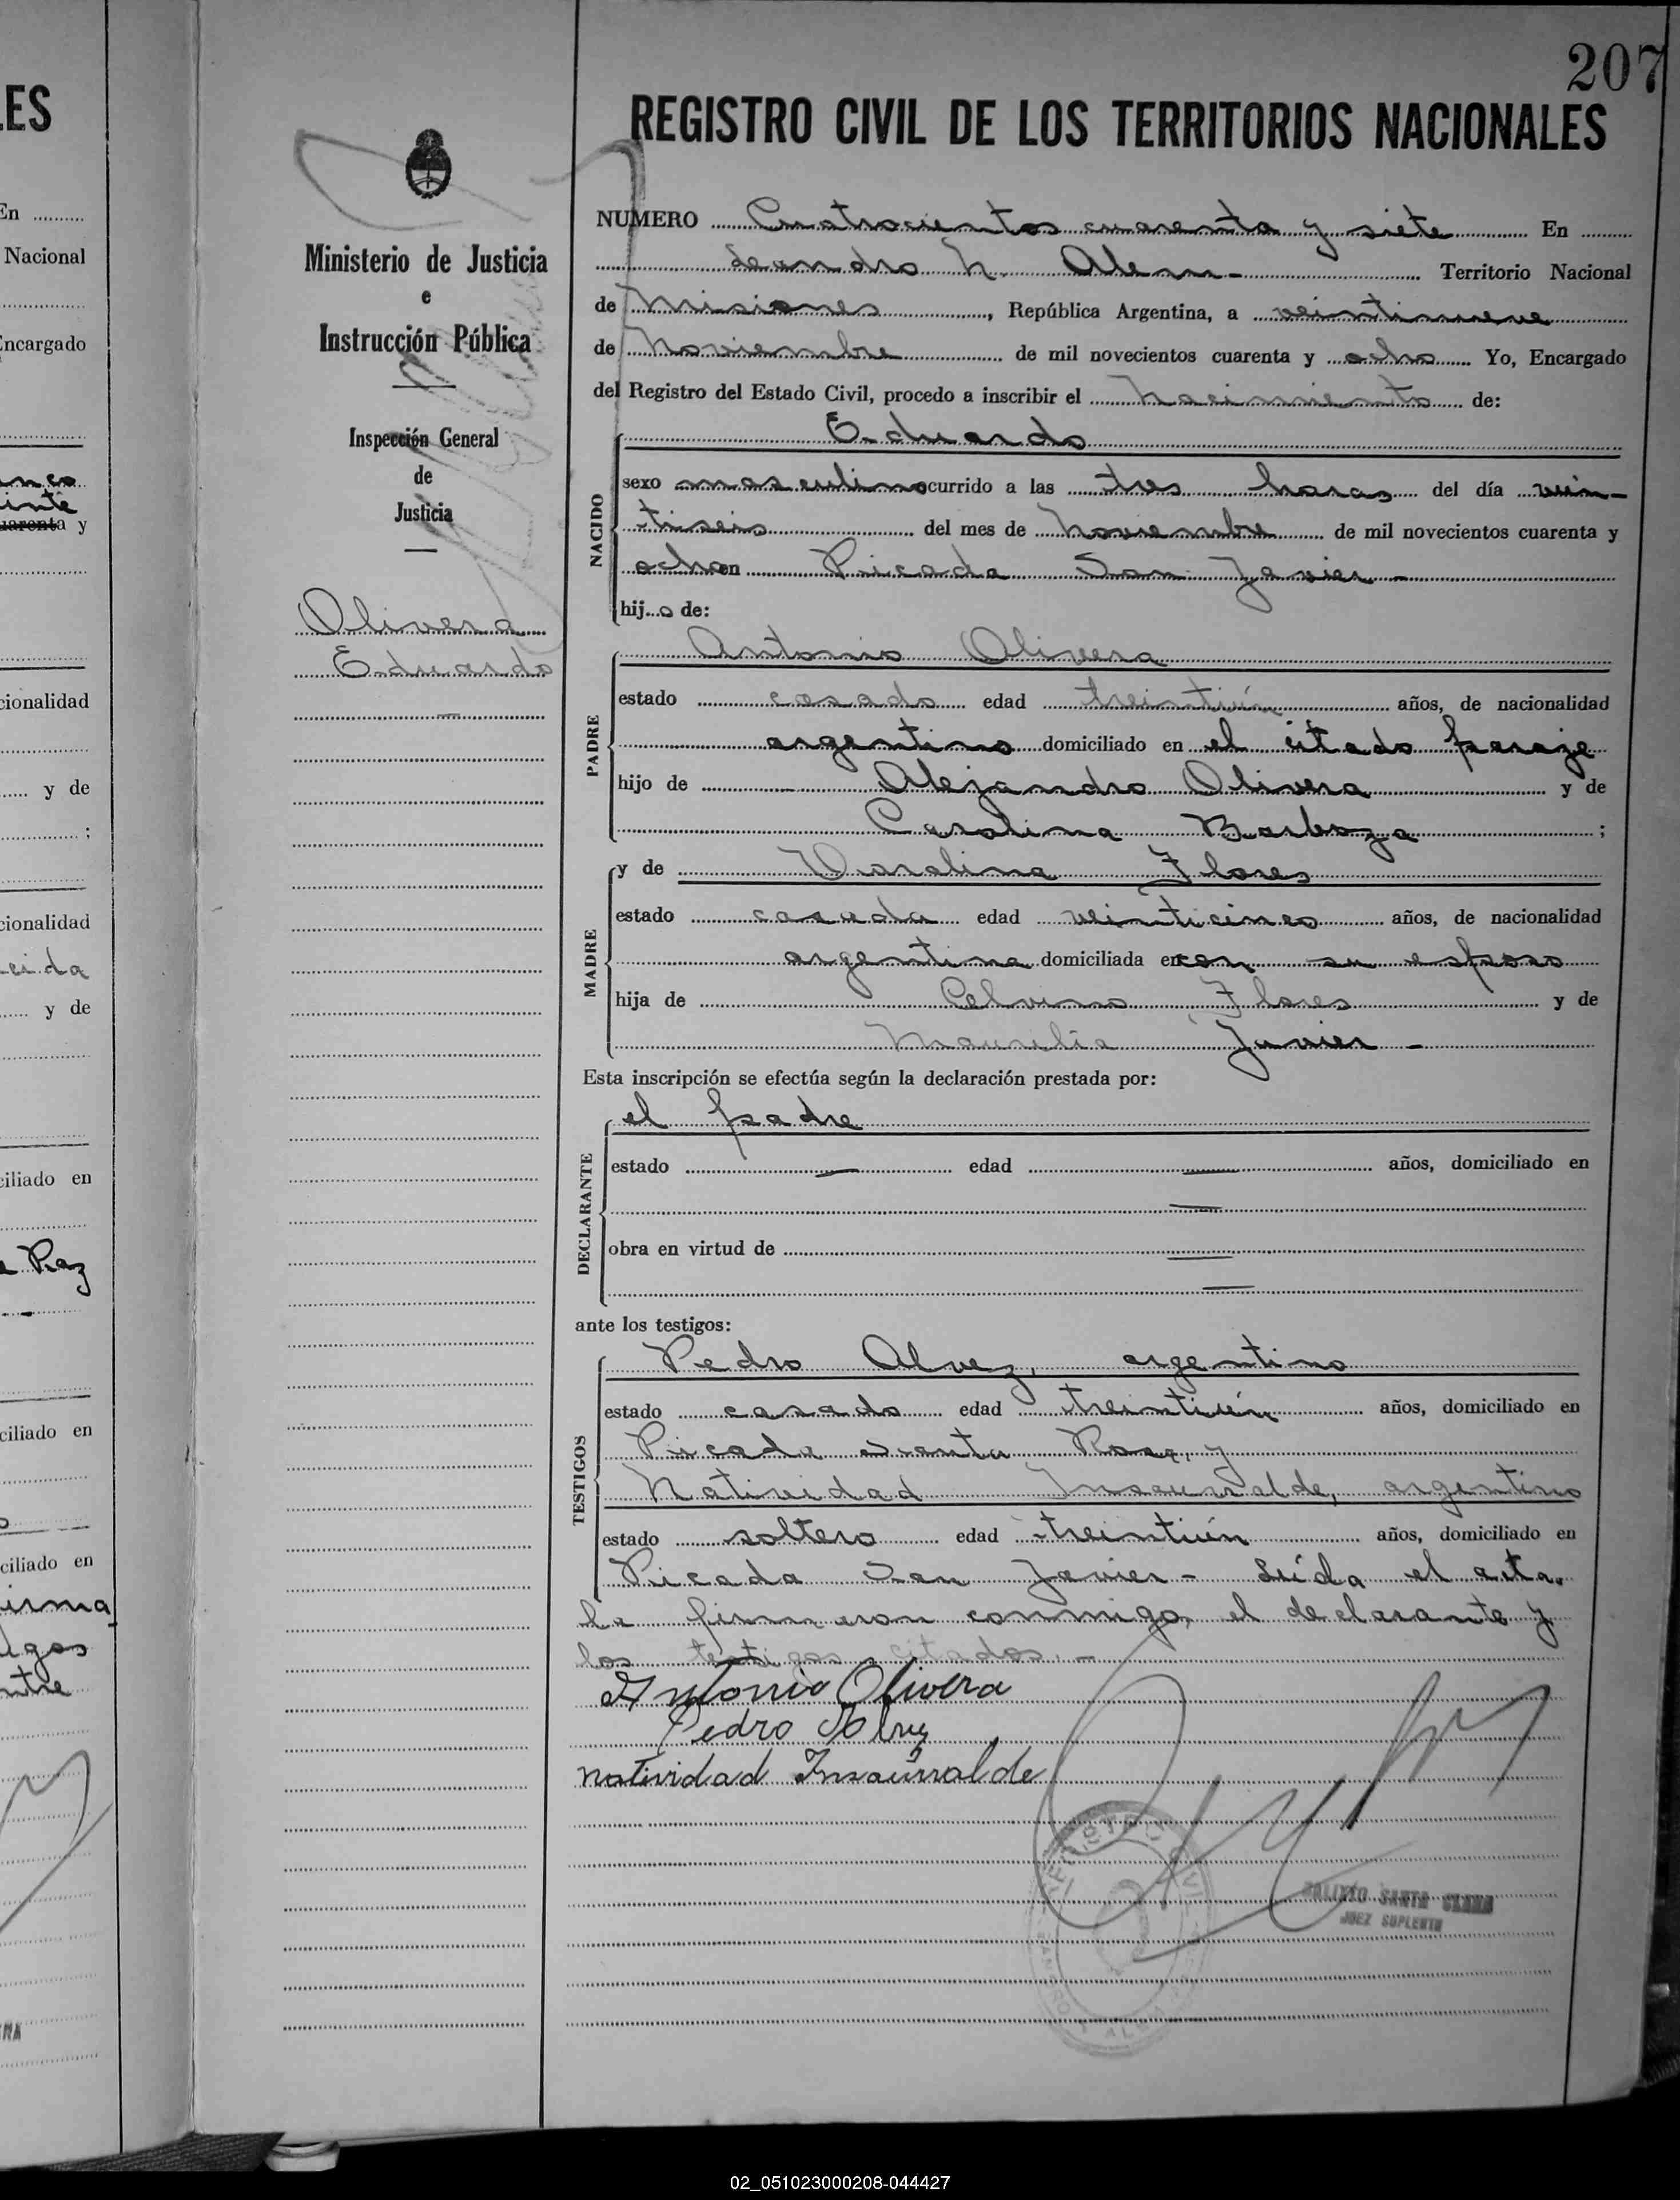 207
REGISTRO CIVIL DE LOS TERRITORIOS NACIONALES
Ministerio de Justicia
e
Instrucción Pública
Inspección General
de
Justicia
Olivera
Eduardo
NUMERO Cuatrocientos cuarenta y siete En
Leandro N. Alem - Territorio Nacional
de Misiones, República Argentina, a veintinueve
de Noviembre de mil novecientos cuarenta y ocho Yo, Encargado
del Registro del Estado Civil, procedo a inscribir el Nacimiento de:
NACIDO
Eduardo
sexo masculino ocurrido a las tres horas del día vein-
tiseis del mes de Noviembre de mil novecientos cuarenta y
ocho en Picada San Javier -
hijo de:
PADRE
Antonio Olivera
estado casado edad treintiún años, de nacionalidad
argentino domiciliado en el citado paraje
hijo de Alejandro Olivera y de
Carolina Barboza ;
MADRE
y de Doralina Flores
estado casada edad veinticinco años, de nacionalidad
argentina domiciliada en con su esposo
hija de Celvino Flores y de
Maurilia Javier -
Esta inscripción se efectúa según la declaración prestada por:
DECLARANTE
el padre
estado — edad — años, domiciliado en
—
obra en virtud de —
—
ante los testigos:
TESTIGOS
Pedro Alvez, argentino
estado casado edad treintiún años, domiciliado en
Picada Santa Rosa, y
Natividad Insaurralde, argentino
estado soltero edad treintiún años, domiciliado en
Picada San Javier - Leída el acta,
la firmaron conmigo, el declarante y
los testigos citados. -
Antonio Olivera
Pedro Alvez
natividad Insaurralde
REGISTRO CIVIL
LEANDRO N. ALEM
SANTA CLARA
JUEZ SUPLENTE
02_051023000208-044427